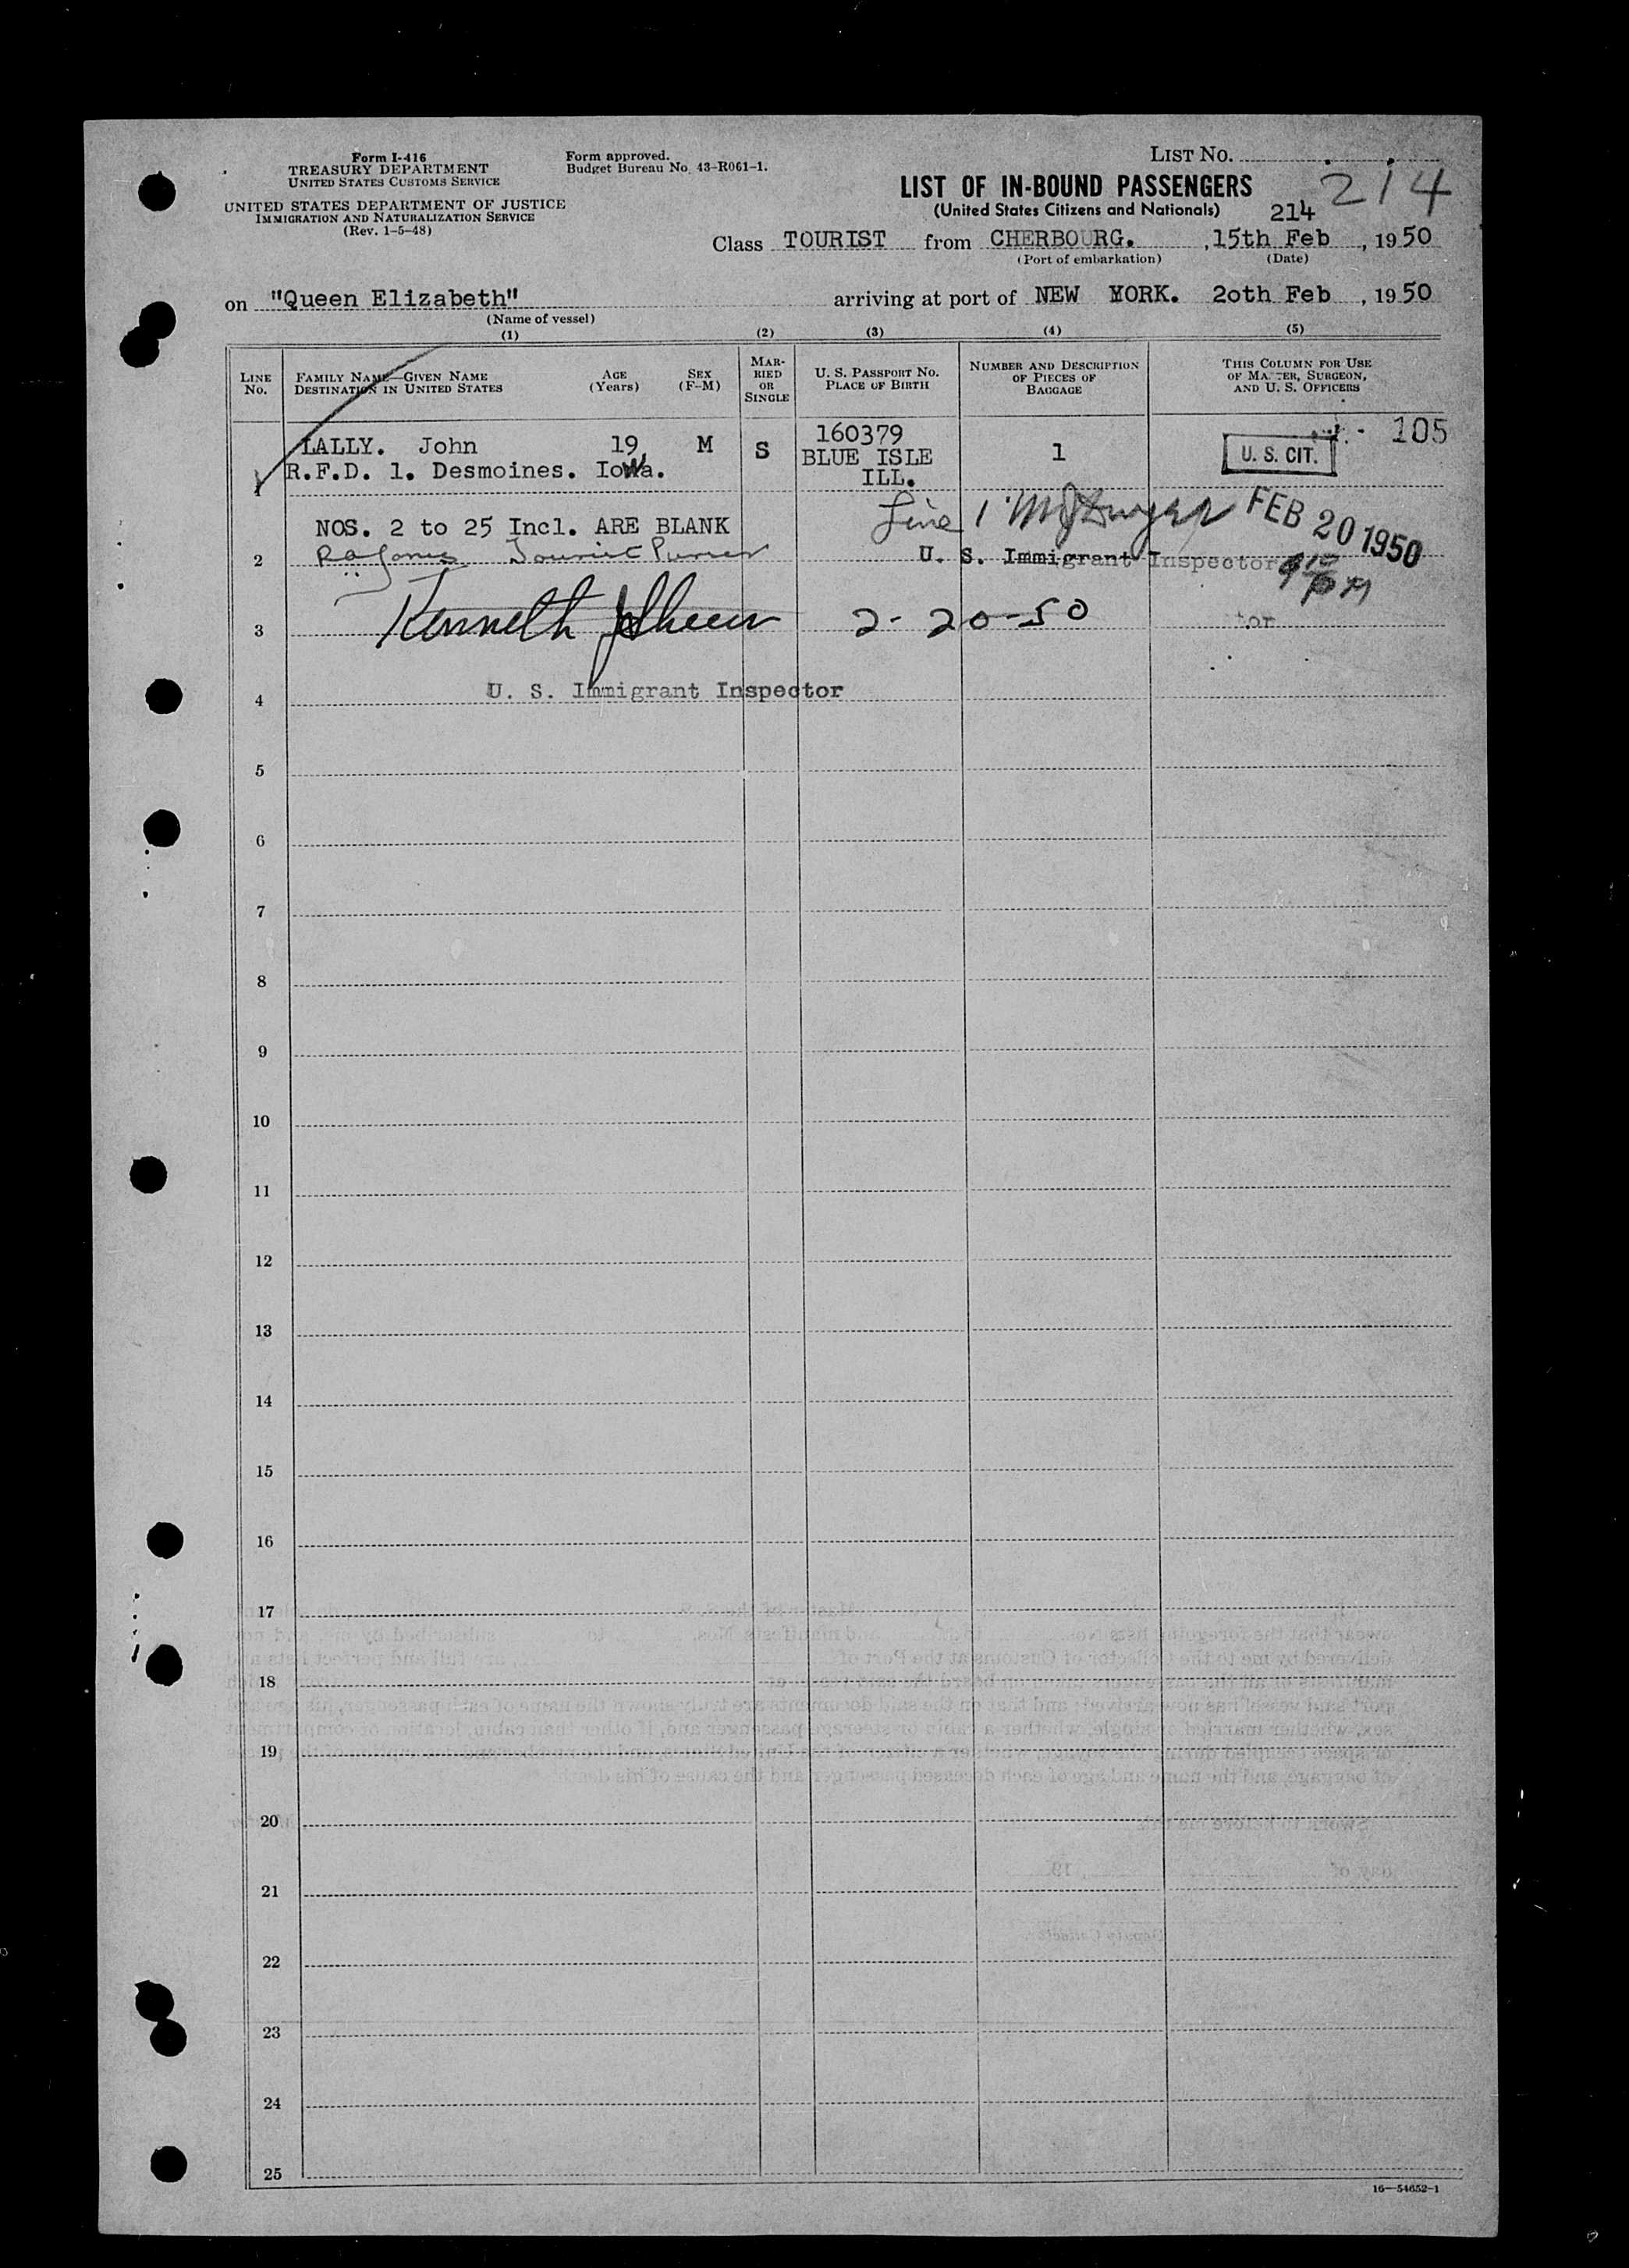 Form I-416
TREASURY DEPARTMENT
UNITED STATES CUSTOMS SERVICE
UNITED STATES DEPARTMENT OF JUSTICE
IMMIGRATION AND NATURALIZATION SERVICE
(Rev. 1-5-48)
Form approved.
Budget Bureau No. 43-R061-1.
LIST NO.
214
LIST OF IN-BOUND PASSENGERS
(United States Citizens and Nationals)
214
Class TOURIST from CHERBOURG. , 15th Feb , 1950
(Port of embarkation) (Date)
on "Queen Elizabeth" arriving at port of NEW YORK. 2oth Feb , 1950
(Name of vessel)
(1) (2) (3) (4) (5)
LINE No. FAMILY NAME—GIVEN NAME DESTINATION IN UNITED STATES AGE (Years) SEX (F-M) MARRIED OR SINGLE U. S. PASSPORT NO. PLACE OF BIRTH NUMBER AND DESCRIPTION OF PIECES OF BAGGAGE THIS COLUMN FOR USE OF MASTER, SURGEON, AND U. S. OFFICERS
105
1 LALLY. John 19 M S 160379 1 U. S. CIT.
R.F.D. 1. Desmoines. Iowa. BLUE ISLE
ILL.
NOS. 2 to 25 Incl. ARE BLANK Line 1 FEB 20 1950
2 Tourist Purser U. S. Immigrant Inspector
3 Kenneth 2-20-50 tor
4 U. S. Immigrant Inspector
5
6
7
8
9
10
11
12
13
14
15
16
17
18
19
20
21
22
23
24
25
16—54652-1